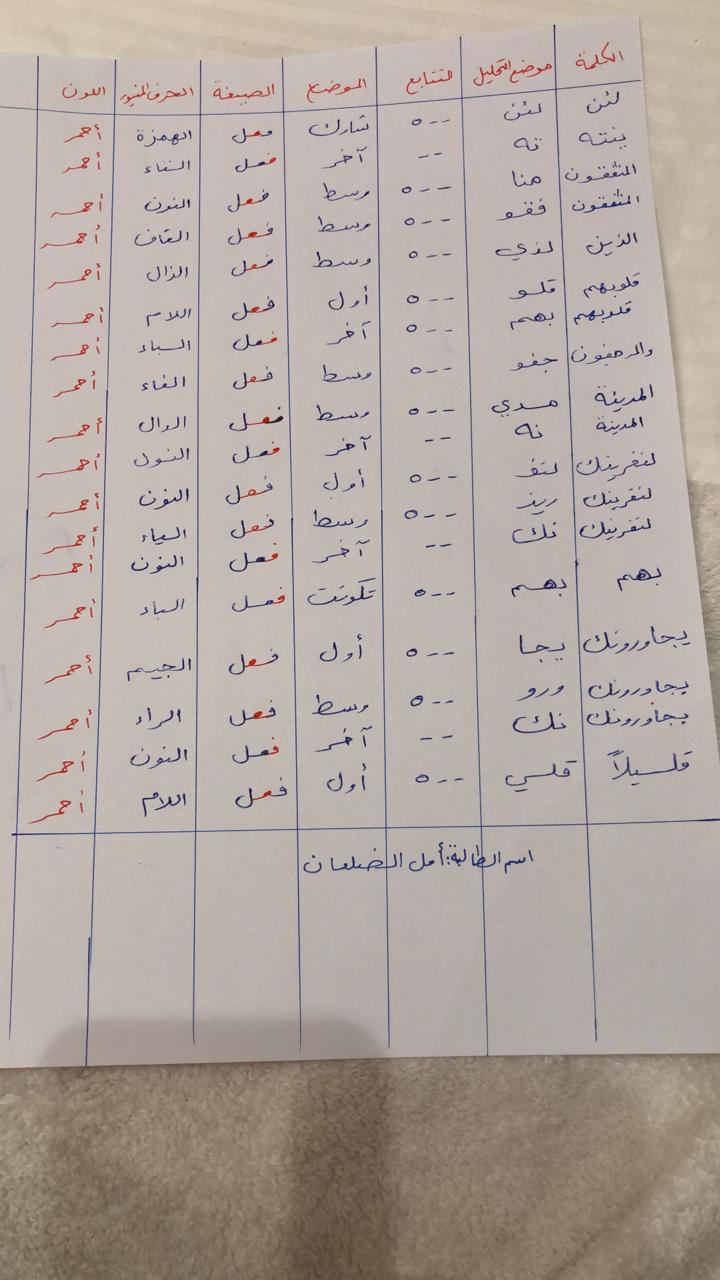 الكلمة موضع التحليل التتابع الموضع الصيغة الحرف المنبور اللون
لئن لئن --ه شارك فعل الهمزة أحمر
ينته ته -- آخر فعل التاء أحمر
المنفقون منا --ه وسط فعل النون أحمر
المنفقون فقو --ه وسط فعل القاف أحمر
الذين لذي --ه وسط فعل الذال أحمر
قلوبهم قلو --ه أول فعل اللام أحمر
قلوبهم بهم --ه آخر فعل الباء أحمر
والمرجفون جفو --ه وسط فعل الفاء أحمر
المدينة مدي --ه وسط فعل الدال أحمر
المدينة نه -- آخر فعل النون أحمر
لنغرينك لنغ --ه أول فعل النون أحمر
لنغرينك رين --ه وسط فعل الياء أحمر
لنغرينك نك -- آخر فعل النون أحمر
بهم بهم --ه تكونت فعل الباء أحمر
يجاورونك يجا --ه أول فعل الجيم أحمر
يجاورونك ورو --ه وسط فعل الراء أحمر
يجاورونك نك -- آخر فعل النون أحمر
قليلاً قلي --ه أول فعل اللام أحمر
اسم الطالبة: أمل الضلعان